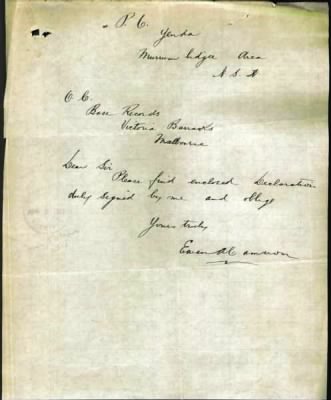 P. O.
Yenda
Murrumbidgee Area
N. S. W
O. C.
Base Records
Victoria Barracks
Melbourne
Dear Sir
Please find enclosed Declaration
duly signed by me and oblige
Yours truly
Cameron